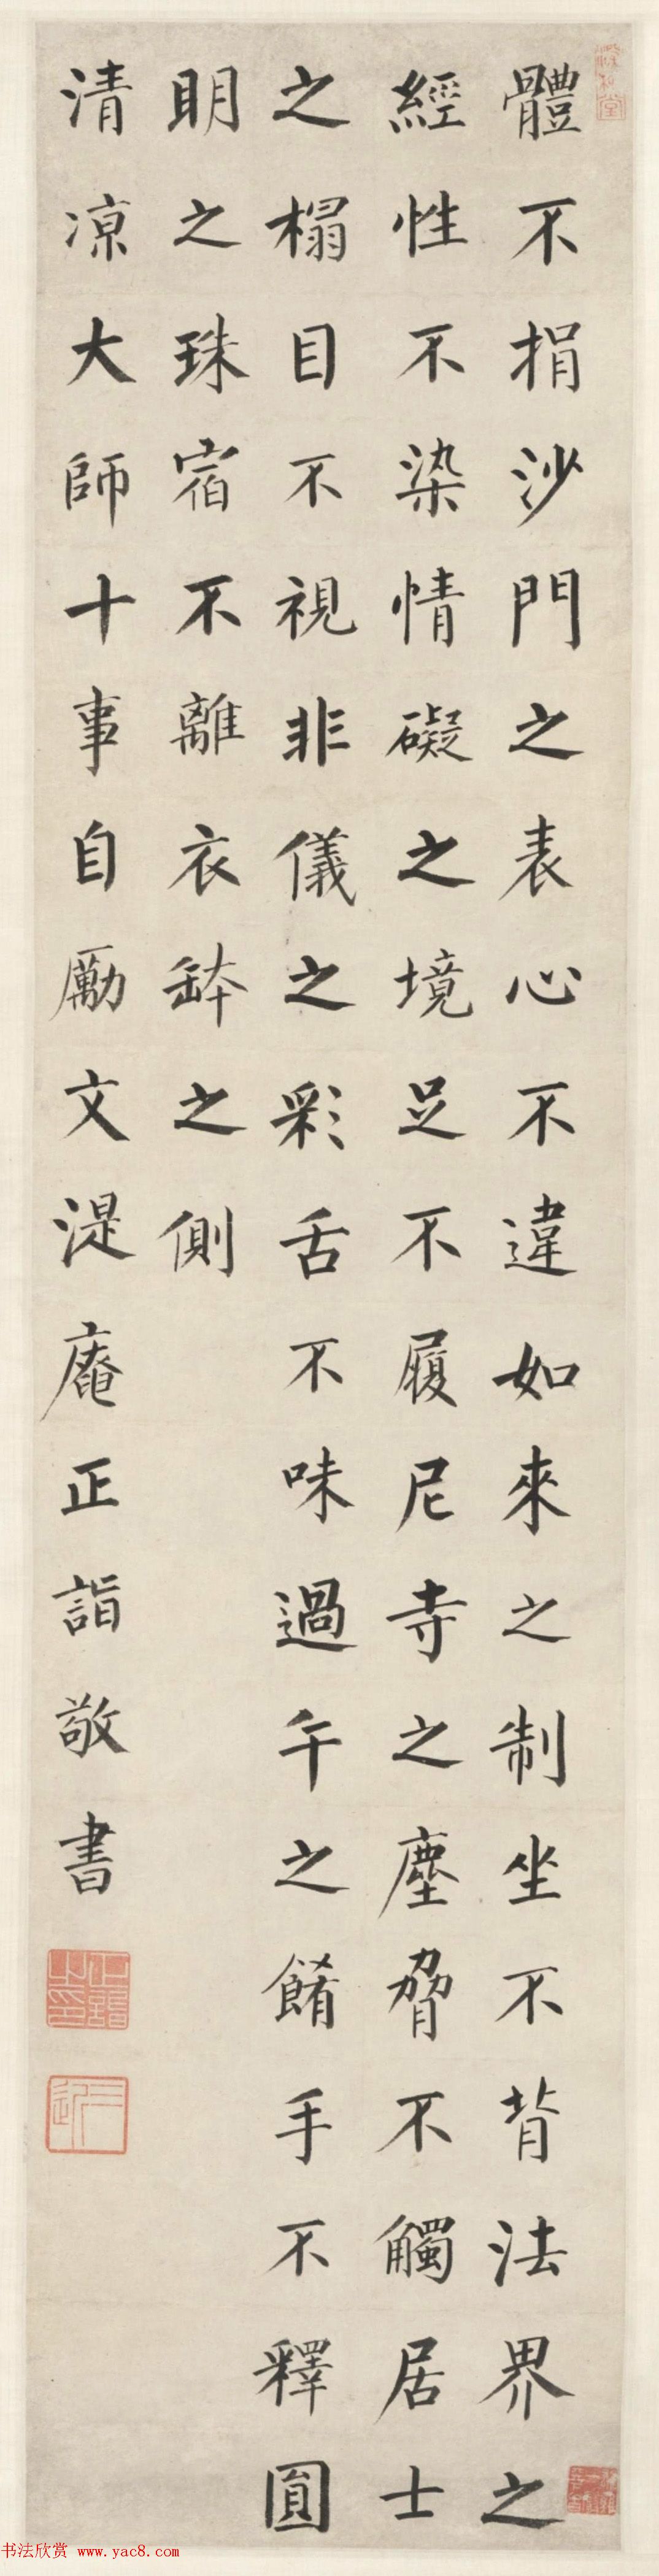 體不捐沙門之表心不違如來之制坐不背法界之
經性不染情礙之境足不履尼寺之塵脅不觸居士
之榻目不視非儀之彩舌不味過午之餚手不釋圓
明之珠宿不離衣鉢之側
清涼大師十事自勵文湜庵正詣敬書
书法欣赏 www.yac8.com